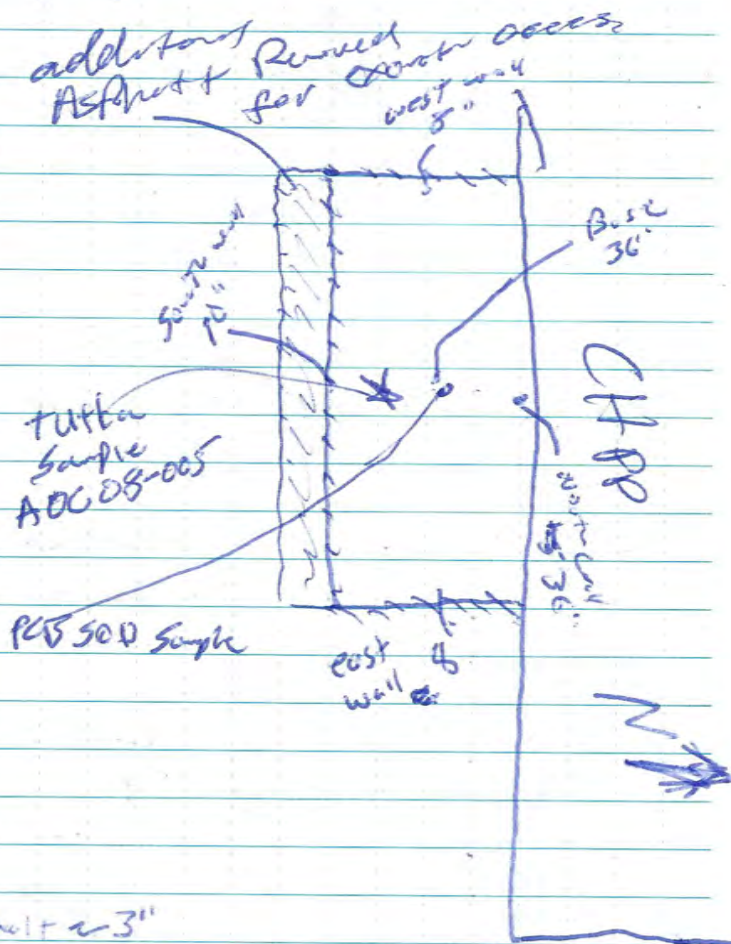 additional
Asphalt Removed
for access
west wall
8"
Base
36"
South wall
10"
Sample
AOC08-005
CHPP
north wall
36"
PCB 500 Sample
east 8
wall
N
~3"